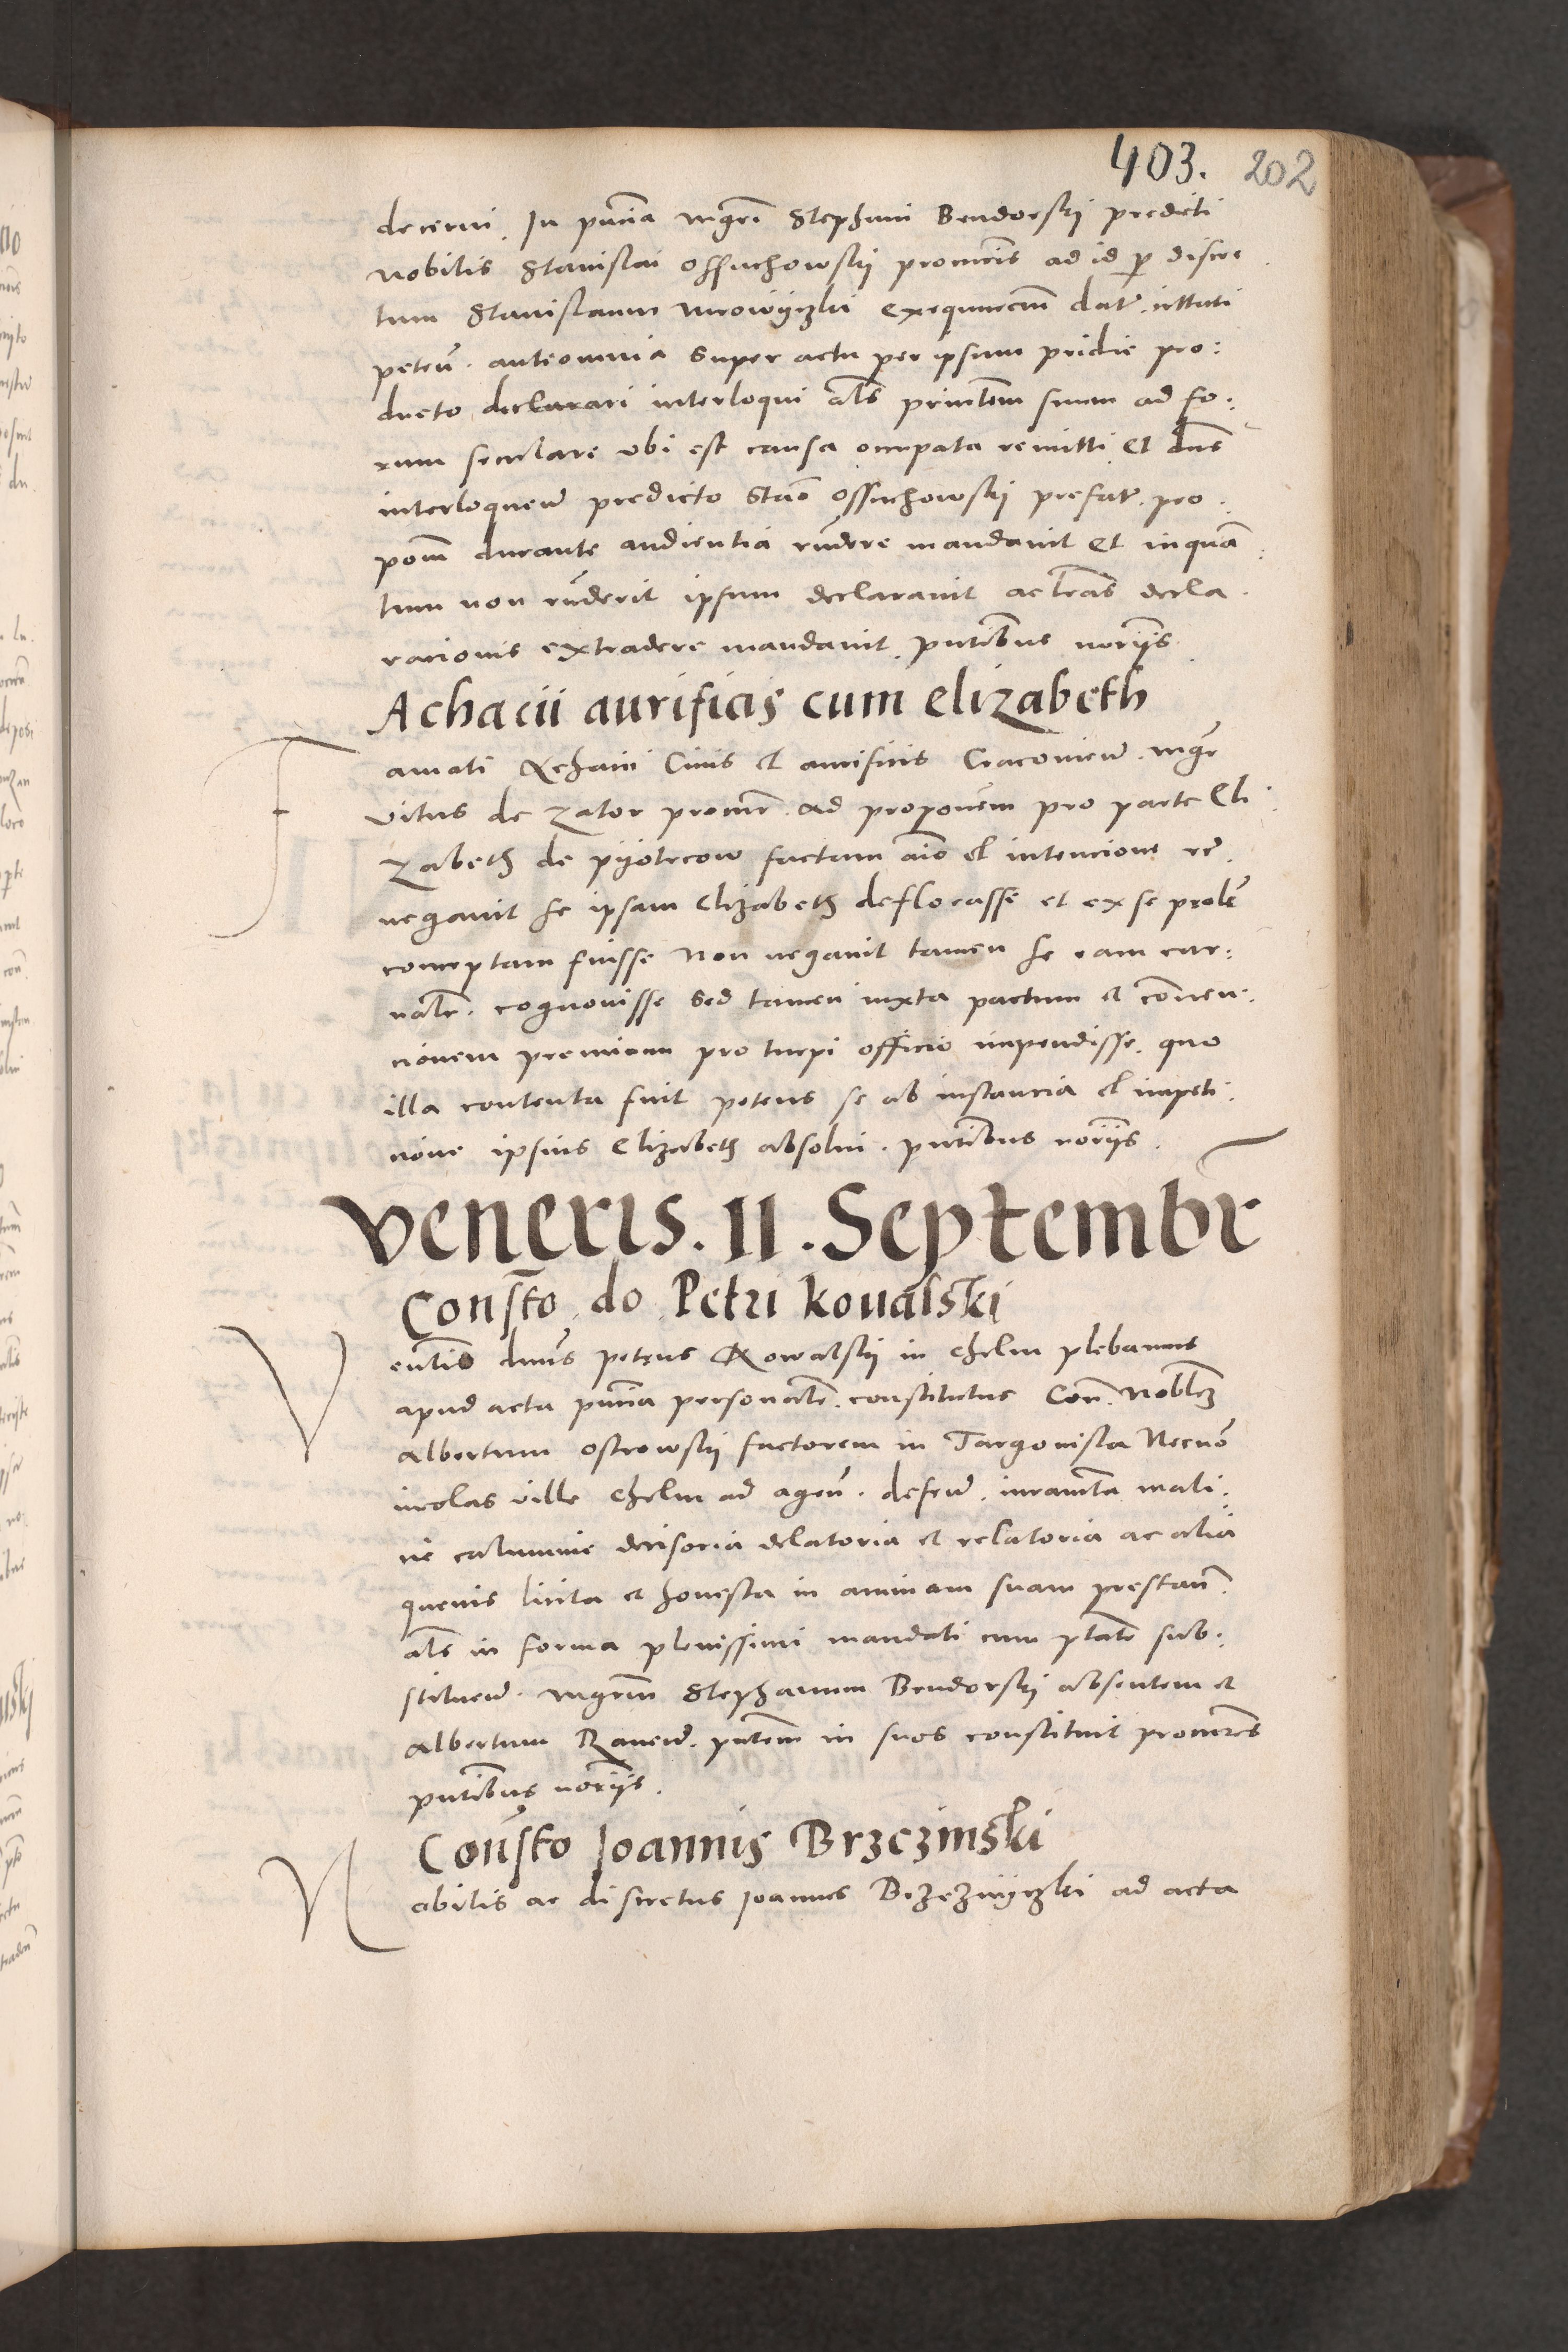 403. 202
decerni. In pntia mgri Stephani Bendorskij predicti
nobilis Stanislai Ossuchowskij procuris ad id per discre
tum Stanislaum exequutem datr.
peten. anteomnia super actu per ipsum pridie pro:
ducto declarari interloqui als prinlem suum ad fo:
rum seculare vbi est causa occupata remitti Et dns
interloquen predicto Stao Ossuchowskij prefat. pro.
pom durante audientia rndere mandavit Et inquan
tum non rnderit ipsum declaravit ac lras decla.
racionis extradere mandavit. pntibus norijs
Achacii aurificis cum elizabeth
Famati Achacii Civis et aurificis Cracovien. mgr
vitus de zator procur. ad proponem pro parte Eli
zabeth de pijotrcow factam aio et intencione re.
negavit se ipsam Elizabeth deflorasse et ex se prolem
conceptam fuisse Non negavit tamen se eam car:
nalr. cognovisse Sed tamen iuxta pactum et conven.
cionem premium pro turpi officio impendisse. quo
illa contenta fuit petens se ab instancia et impeti.
cione ipsius Elizabeth absolvi. pntibus norijs.
Veneris. 11. Septembr
Consto do Petri kovalski
Venlis dnus petrus Kowalskij in chelm plebanus
apud acta pntia personalr. constitutus Con. Noblem
Albertum ostrowskij factorem in Targovista Necno
incolas ville chelm ad agen. defen. iuramta mali.
cie calumnie decisoria delatoria et relatoria ac alia
quevis licita et honesta in animam suam prestan.
als in forma plenissimi mandati cum ptate sub.
stituen. mgrum Stephanum Bendorskij absentem et
Albertum Raven. pntem in suos constituit procures
pntibus norijs.
Consto Joannis Brzezinski
Nobilis ac discretus Joannes Brzezinijczki ad acta